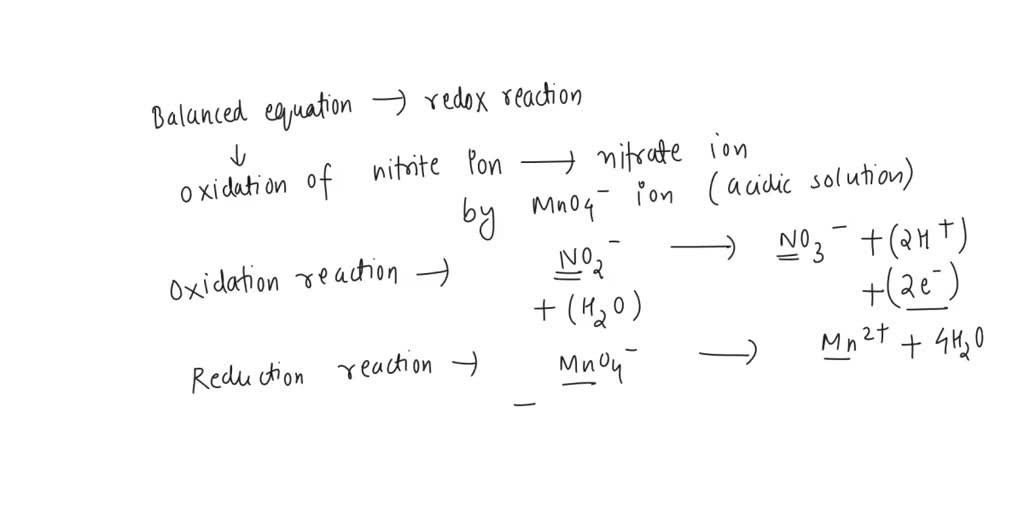 Balanced equation → redox reaction
↓
oxidation of nitrite Pon → nitrate ion
by MnO4⁻ ion (acidic solution)
Oxidation reaction → NO2⁻ → NO3⁻ + (2H⁺)
+ (H2O) + (2e⁻)
Reduction reaction → MnO4⁻ → Mn²⁺ + 4H2O
–